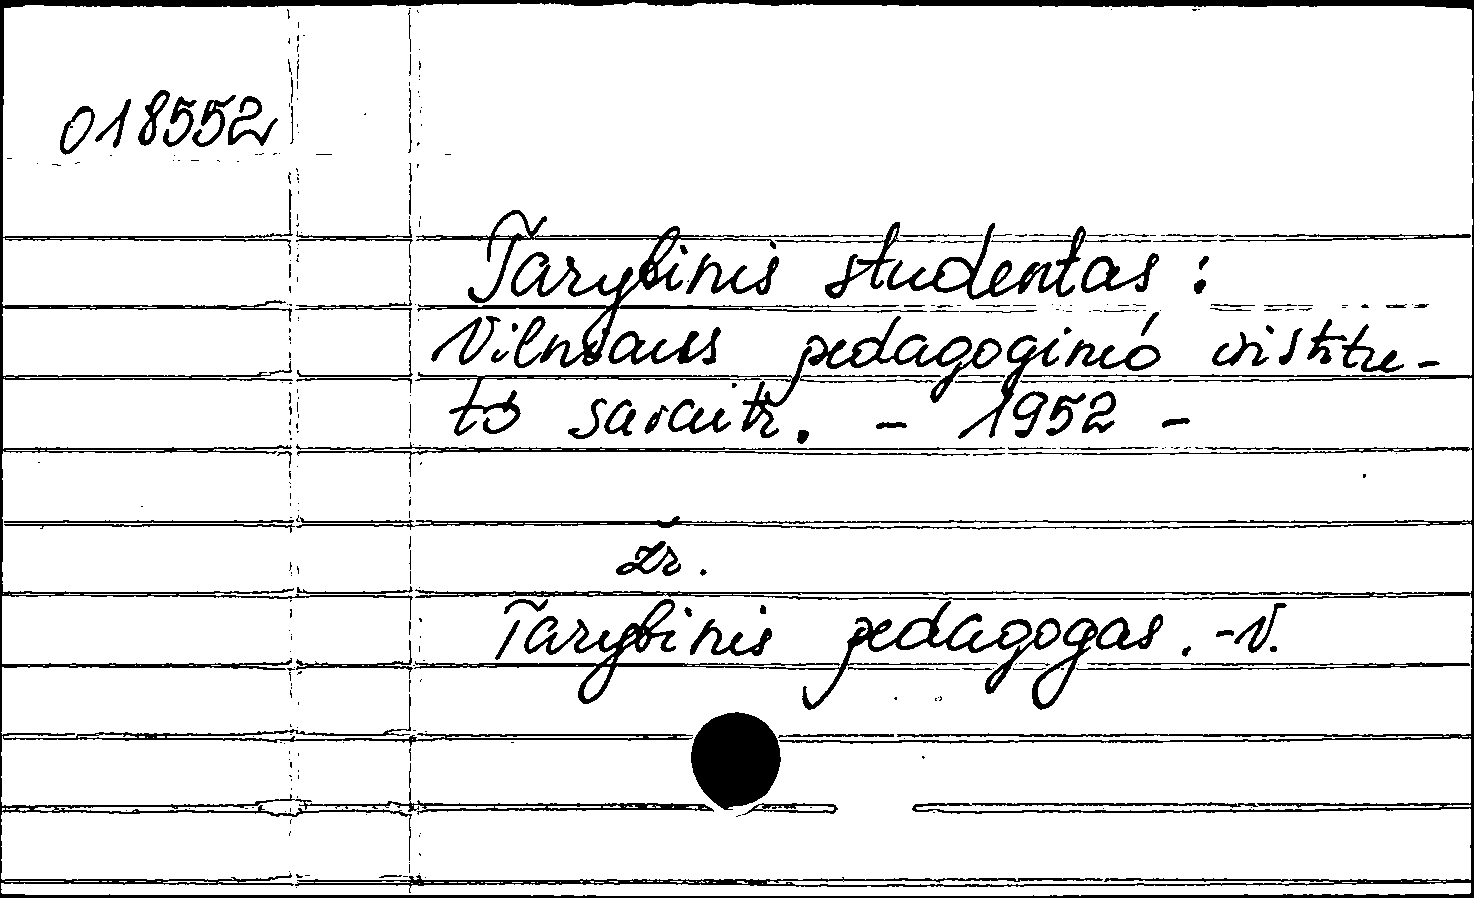 018552
Tarybinis studentas :
Vilniaus pedagoginio institu-
to savaitr. - 1952 -
žr.
Tarybinis pedagogas. - V.